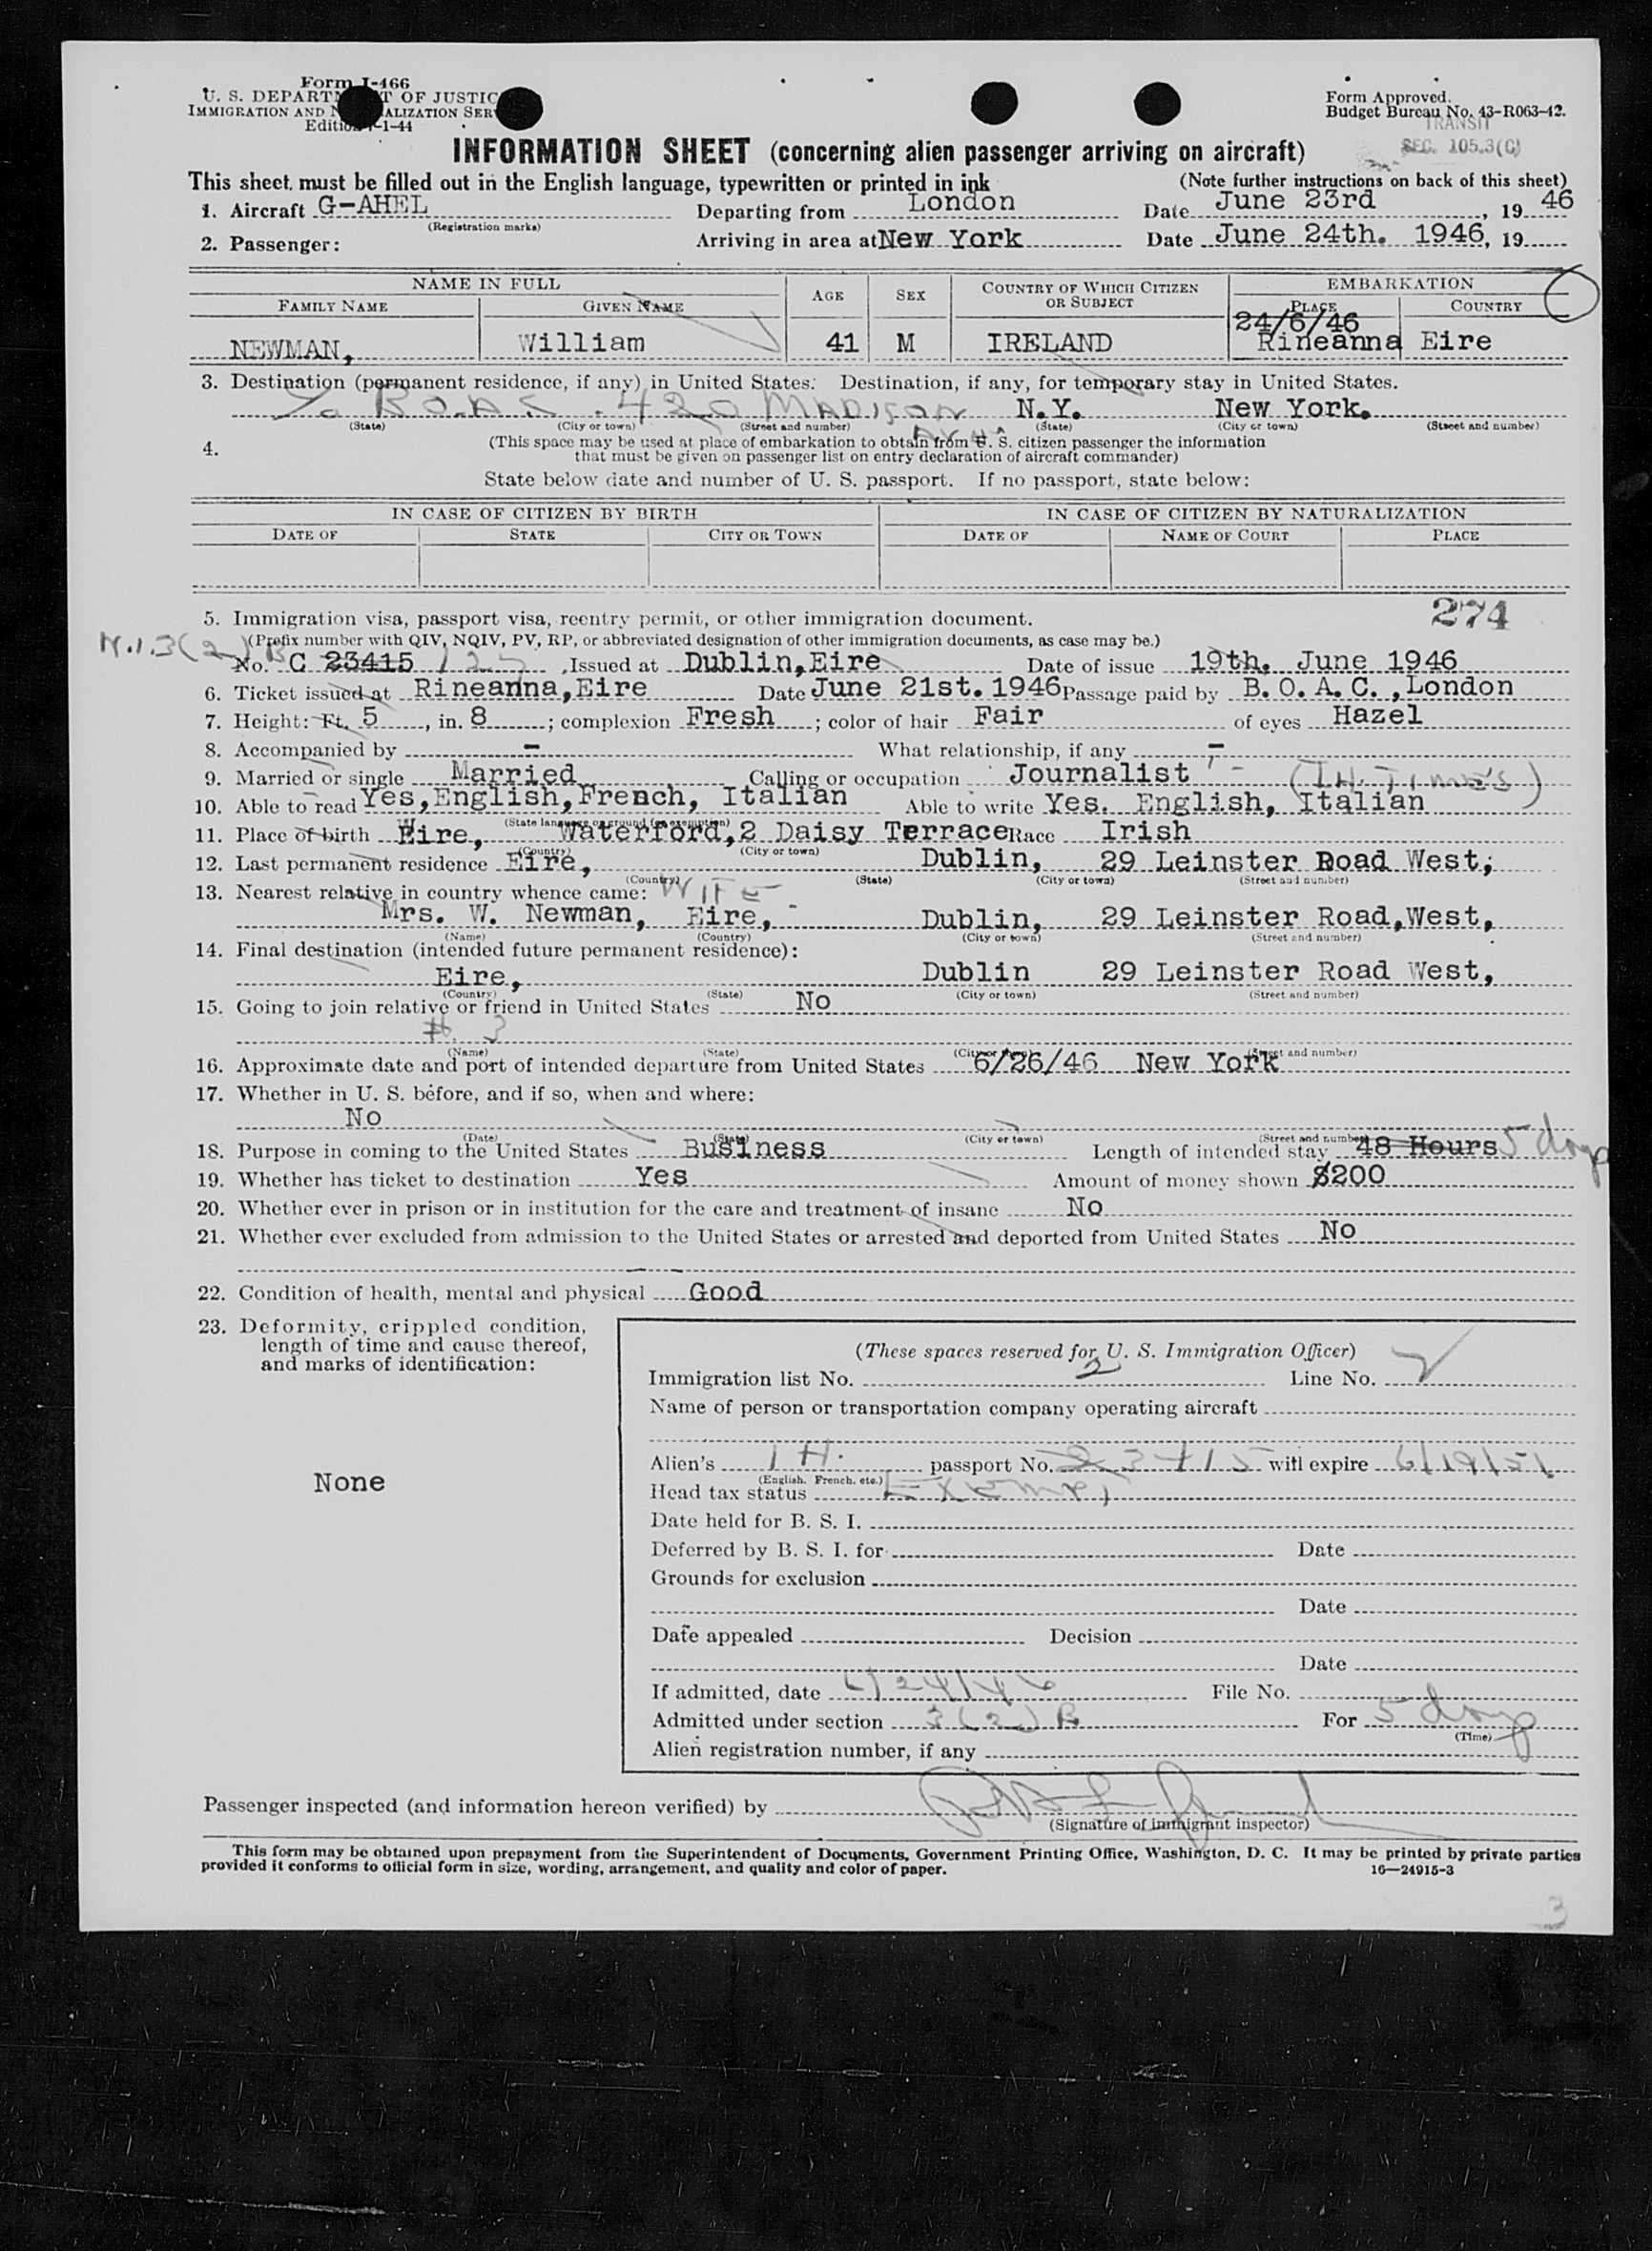 Form I-466
U. S. DEPARTM T OF JUSTIC
IMMIGRATION AND N ALIZATION SER
Edition 7-1-44
Form Approved.
Budget Bureau No. 43-R063-42.
TRANSIT
SEC. 105.3(C)
INFORMATION SHEET (concerning alien passenger arriving on aircraft)
This sheet must be filled out in the English language, typewritten or printed in ink (Note further instructions on back of this sheet)
1. Aircraft G-AHEL Departing from London Date June 23rd, 19 46
(Registration marks)
2. Passenger: Arriving in area at New York Date June 24th. 1946, 19
NAME IN FULL AGE SEX COUNTRY OF WHICH CITIZEN OR SUBJECT EMBARKATION
FAMILY NAME GIVEN NAME PLACE COUNTRY
24/6/46
NEWMAN, William 41 M IRELAND Rineanna Eire
3. Destination (permanent residence, if any) in United States. Destination, if any, for temporary stay in United States.
c/o B.O.A.C. 420 MADISON N.Y. New York.
(State) (City or town) (Street and number) (State) (City or town) (Street and number)
4. (This space may be used at place of embarkation to obtain from U. S. citizen passenger the information
that must be given on passenger list on entry declaration of aircraft commander)
State below date and number of U. S. passport. If no passport, state below:
IN CASE OF CITIZEN BY BIRTH IN CASE OF CITIZEN BY NATURALIZATION
DATE OF STATE CITY OR TOWN DATE OF NAME OF COURT PLACE
274
5. Immigration visa, passport visa, reentry permit, or other immigration document.
(Prefix number with QIV, NQIV, PV, RP, or abbreviated designation of other immigration documents, as case may be.)
No. C 23415 Issued at Dublin, Eire Date of issue 19th. June 1946
6. Ticket issued at Rineanna, Eire Date June 21st. 1946 Passage paid by B.O.A.C., London
7. Height: Ft. 5, in. 8; complexion Fresh; color of hair Fair of eyes Hazel
8. Accompanied by - What relationship, if any -
9. Married or single Married Calling or occupation Journalist (IH. TIMES)
10. Able to read Yes, English, French, Italian Able to write Yes. English, Italian
(State language or ground for exemption)
11. Place of birth Eire, Waterford, 2 Daisy Terrace Race Irish
(Country) (City or town)
12. Last permanent residence Eire, Dublin, 29 Leinster Road West,
(Country) (State) (City or town) (Street and number)
13. Nearest relative in country whence came: WIFE
Mrs. W. Newman, Eire, Dublin, 29 Leinster Road, West,
(Name) (Country) (City or town) (Street and number)
14. Final destination (intended future permanent residence):
Eire, Dublin 29 Leinster Road West,
(Country) (State) (City or town) (Street and number)
15. Going to join relative or friend in United States No
# 3
(Name) (State) (City or town) (Street and number)
16. Approximate date and port of intended departure from United States 6/26/46 New York
17. Whether in U. S. before, and if so, when and where:
No
(Date) (State) (City or town) (Street and number)
18. Purpose in coming to the United States Business Length of intended stay 48 Hours 5 days
19. Whether has ticket to destination Yes Amount of money shown $200
20. Whether ever in prison or in institution for the care and treatment of insane No
21. Whether ever excluded from admission to the United States or arrested and deported from United States No
22. Condition of health, mental and physical Good
23. Deformity, crippled condition,
length of time and cause thereof,
and marks of identification:
None
(These spaces reserved for U. S. Immigration Officer)
Immigration list No. 2 Line No.
Name of person or transportation company operating aircraft
Alien's IH. passport No. 23415 will expire 6/19/51
(English, French, etc.)
Head tax status Exempt
Date held for B. S. I.
Deferred by B. S. I. for Date
Grounds for exclusion
Date
Date appealed Decision
Date
If admitted, date 6/24/46 File No.
Admitted under section 3(2)B For 5 days
(Time)
Alien registration number, if any
Passenger inspected (and information hereon verified) by
(Signature of immigrant inspector)
This form may be obtained upon prepayment from the Superintendent of Documents, Government Printing Office, Washington, D. C. It may be printed by private parties
provided it conforms to official form in size, wording, arrangement, and quality and color of paper. 16—24915-3
3